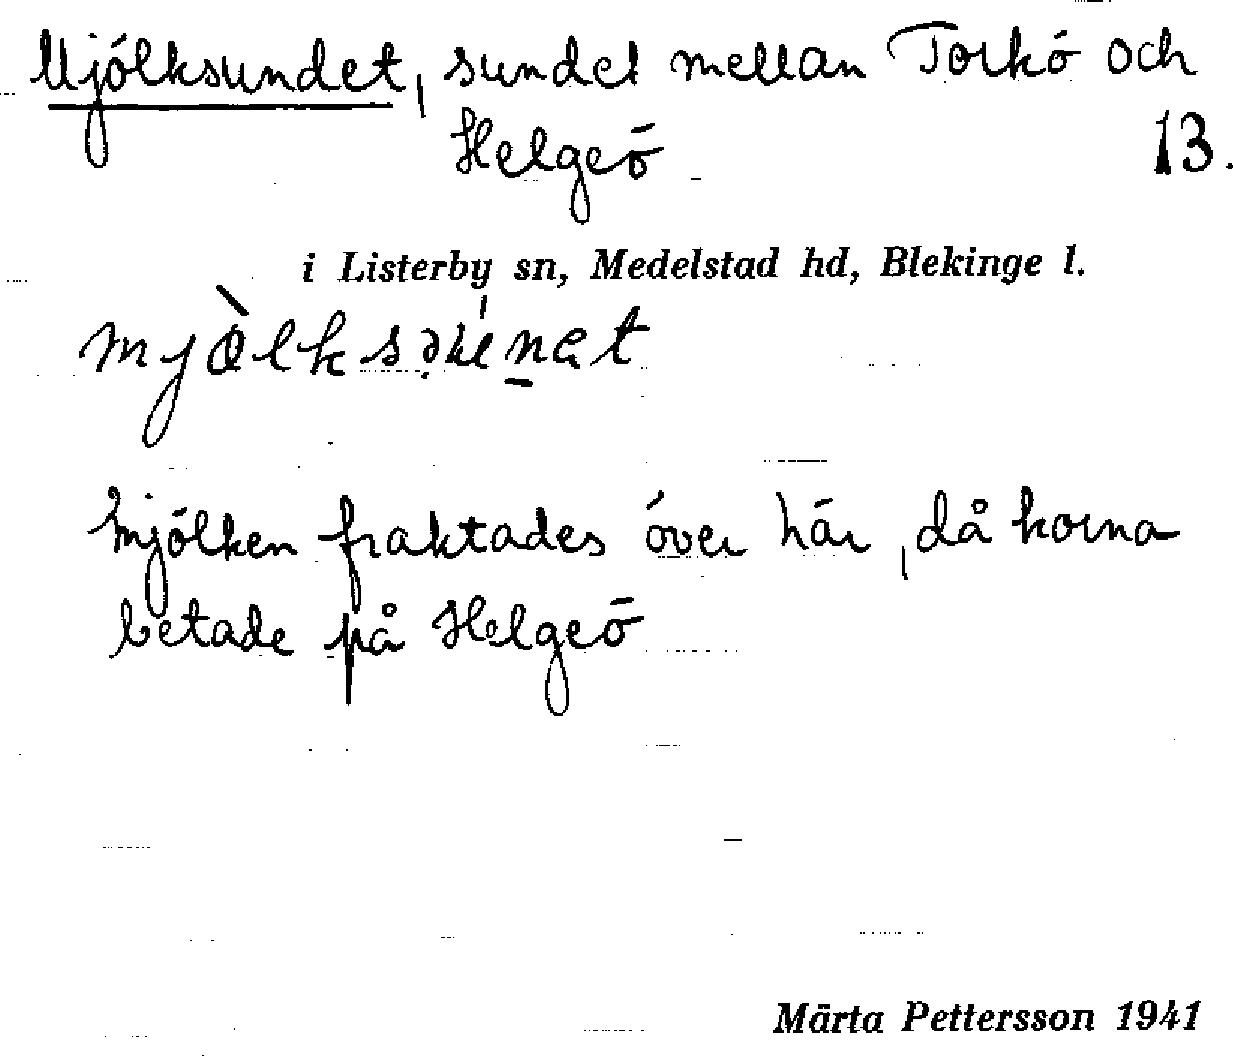 Mjölksundet, sundet mellan Torkö och
Helgeö
13.
i Listerby sn, Medelstad hd, Blekinge l.
Mjölken fraktades över här, då korna
betade på Helgeö
Märta Pettersson 1941